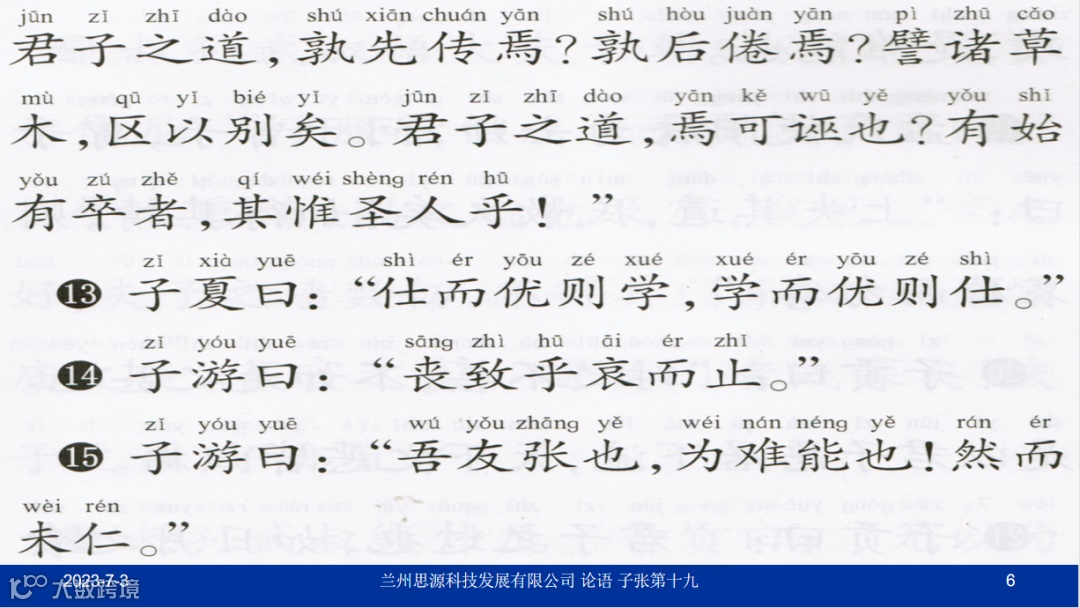 jūn zǐ zhī dào shú xiān chuán yān shú hòu juàn yān pì zhū cǎo
君子之道，孰先传焉？孰后倦焉？譬诸草
mù qū yǐ bié yǐ jūn zǐ zhī dào yān kě wū yě yǒu shǐ
木，区以别矣。君子之道，焉可诬也？有始
yǒu zú zhě qí wéi shèng rén hū
有卒者，其惟圣人乎！”
zǐ xià yuē shì ér yōu zé xué xué ér yōu zé shì
13 子夏曰：“仕而优则学，学而优则仕。”
zǐ yóu yuē sāng zhì hū āi ér zhǐ
14 子游曰：“丧致乎哀而止。”
zǐ yóu yuē wú yǒu zhāng yě wéi nán néng yě rán ér
15 子游曰：“吾友张也，为难能也！然而
wèi rén
未仁。”
2023-7-3 兰州思源科技发展有限公司 论语 子张第十九 6
大数跨境